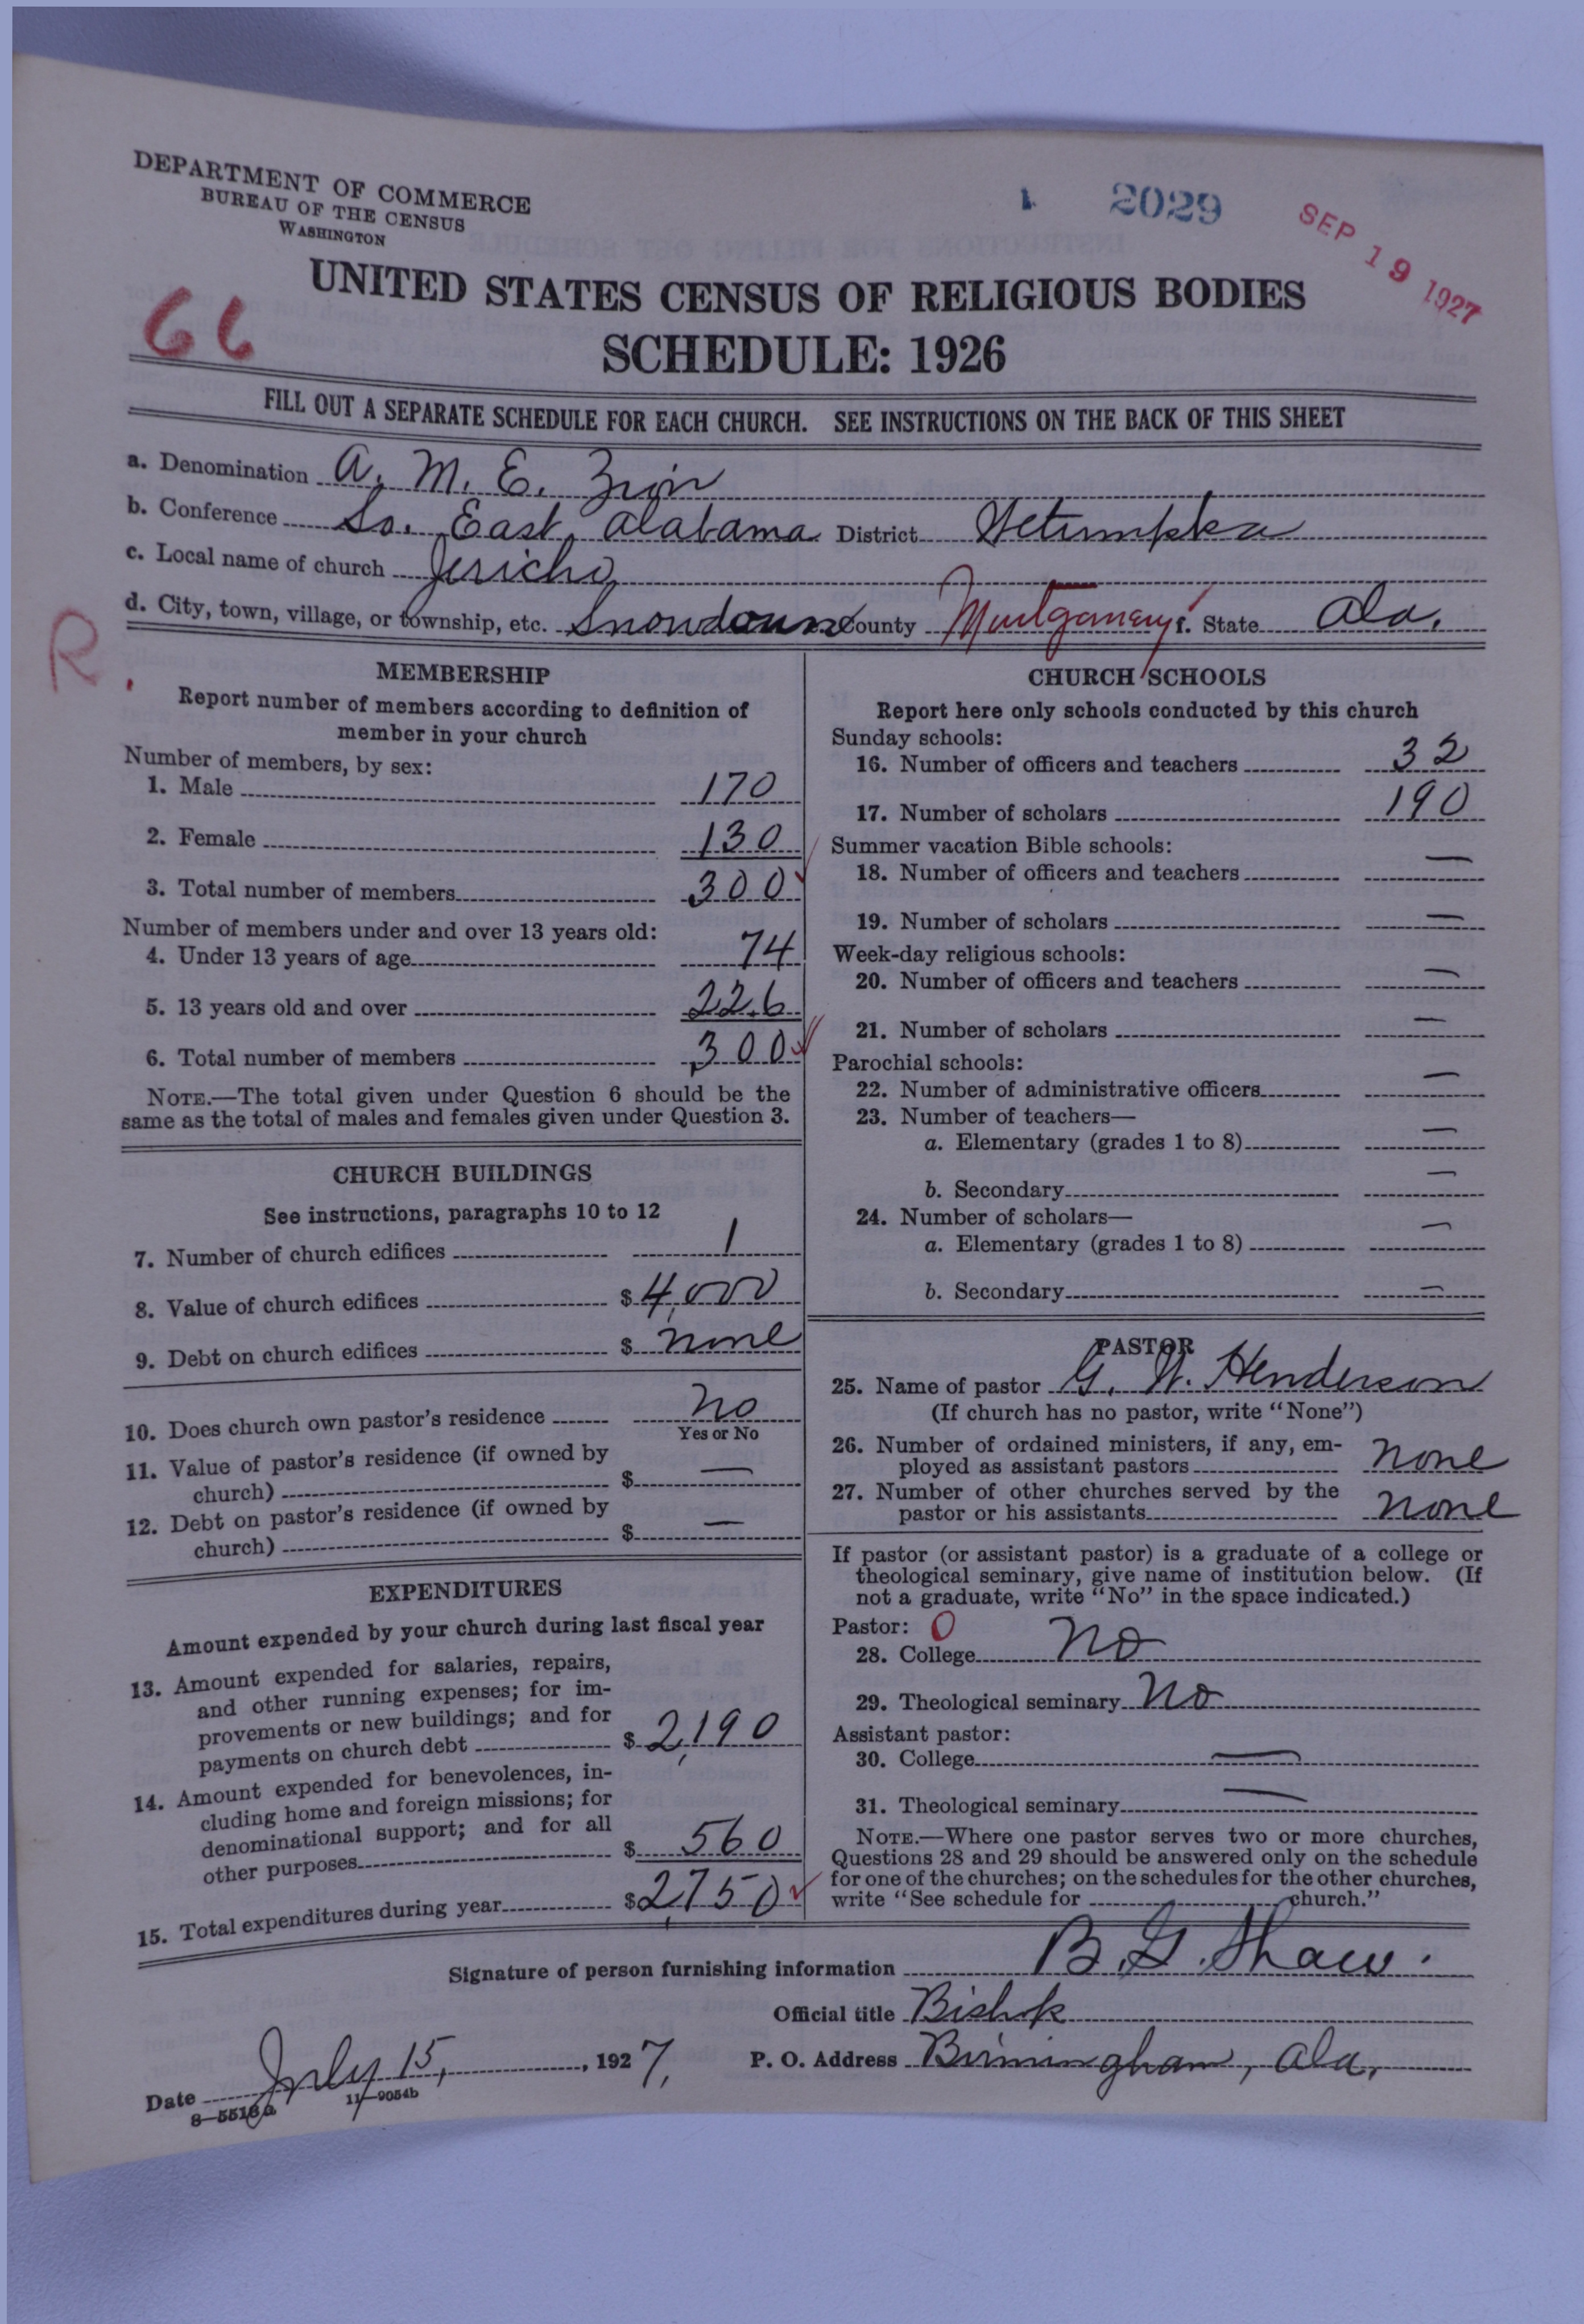 DEPARTMENT OF COMMERCE
BUREAU OF THE CENSUS
WASHINGTON
1 2029
SEP 19 1927
UNITED STATES CENSUS OF RELIGIOUS BODIES
SCHEDULE: 1926
66
FILL OUT A SEPARATE SCHEDULE FOR EACH CHURCH. SEE INSTRUCTIONS ON THE BACK OF THIS SHEET
a. Denomination A. M. E. Zion
b. Conference So. East Alabama District Wetumpka
c. Local name of church Jericho
d. City, town, village, or township, etc. Snowdoun County Montgomery State Ala.
R.
MEMBERSHIP
Report number of members according to definition of
member in your church
Number of members, by sex:
1. Male 170
2. Female 130
3. Total number of members 300
Number of members under and over 13 years old:
4. Under 13 years of age 74
5. 13 years old and over 226
6. Total number of members 300
NOTE.—The total given under Question 6 should be the
same as the total of males and females given under Question 3.
CHURCH BUILDINGS
See instructions, paragraphs 10 to 12
7. Number of church edifices 1
8. Value of church edifices $ 4,000
9. Debt on church edifices $ none
10. Does church own pastor's residence No
Yes or No
11. Value of pastor's residence (if owned by
church) $ —
12. Debt on pastor's residence (if owned by
church) $ —
EXPENDITURES
Amount expended by your church during last fiscal year
13. Amount expended for salaries, repairs,
and other running expenses; for im-
provements or new buildings; and for
payments on church debt $ 2,190
14. Amount expended for benevolences, in-
cluding home and foreign missions; for
denominational support; and for all
other purposes $ 560
15. Total expenditures during year $ 2,750
CHURCH SCHOOLS
Report here only schools conducted by this church
Sunday schools:
16. Number of officers and teachers 32
17. Number of scholars 190
Summer vacation Bible schools:
18. Number of officers and teachers —
19. Number of scholars —
Week-day religious schools:
20. Number of officers and teachers —
21. Number of scholars —
Parochial schools:
22. Number of administrative officers —
23. Number of teachers—
a. Elementary (grades 1 to 8) —
b. Secondary —
24. Number of scholars—
a. Elementary (grades 1 to 8) —
b. Secondary —
PASTOR
25. Name of pastor G. W. Henderson
(If church has no pastor, write "None")
26. Number of ordained ministers, if any, em-
ployed as assistant pastors none
27. Number of other churches served by the
pastor or his assistants none
If pastor (or assistant pastor) is a graduate of a college or
theological seminary, give name of institution below. (If
not a graduate, write "No" in the space indicated.)
Pastor: 0
28. College No
29. Theological seminary No
Assistant pastor:
30. College —
31. Theological seminary —
NOTE.—Where one pastor serves two or more churches,
Questions 28 and 29 should be answered only on the schedule
for one of the churches; on the schedules for the other churches,
write "See schedule for church."
Signature of person furnishing information B. G. Shaw.
Official title Bishop
Date July 15, 1927, P. O. Address Birmingham, Ala.
8—5518a 11—9054b